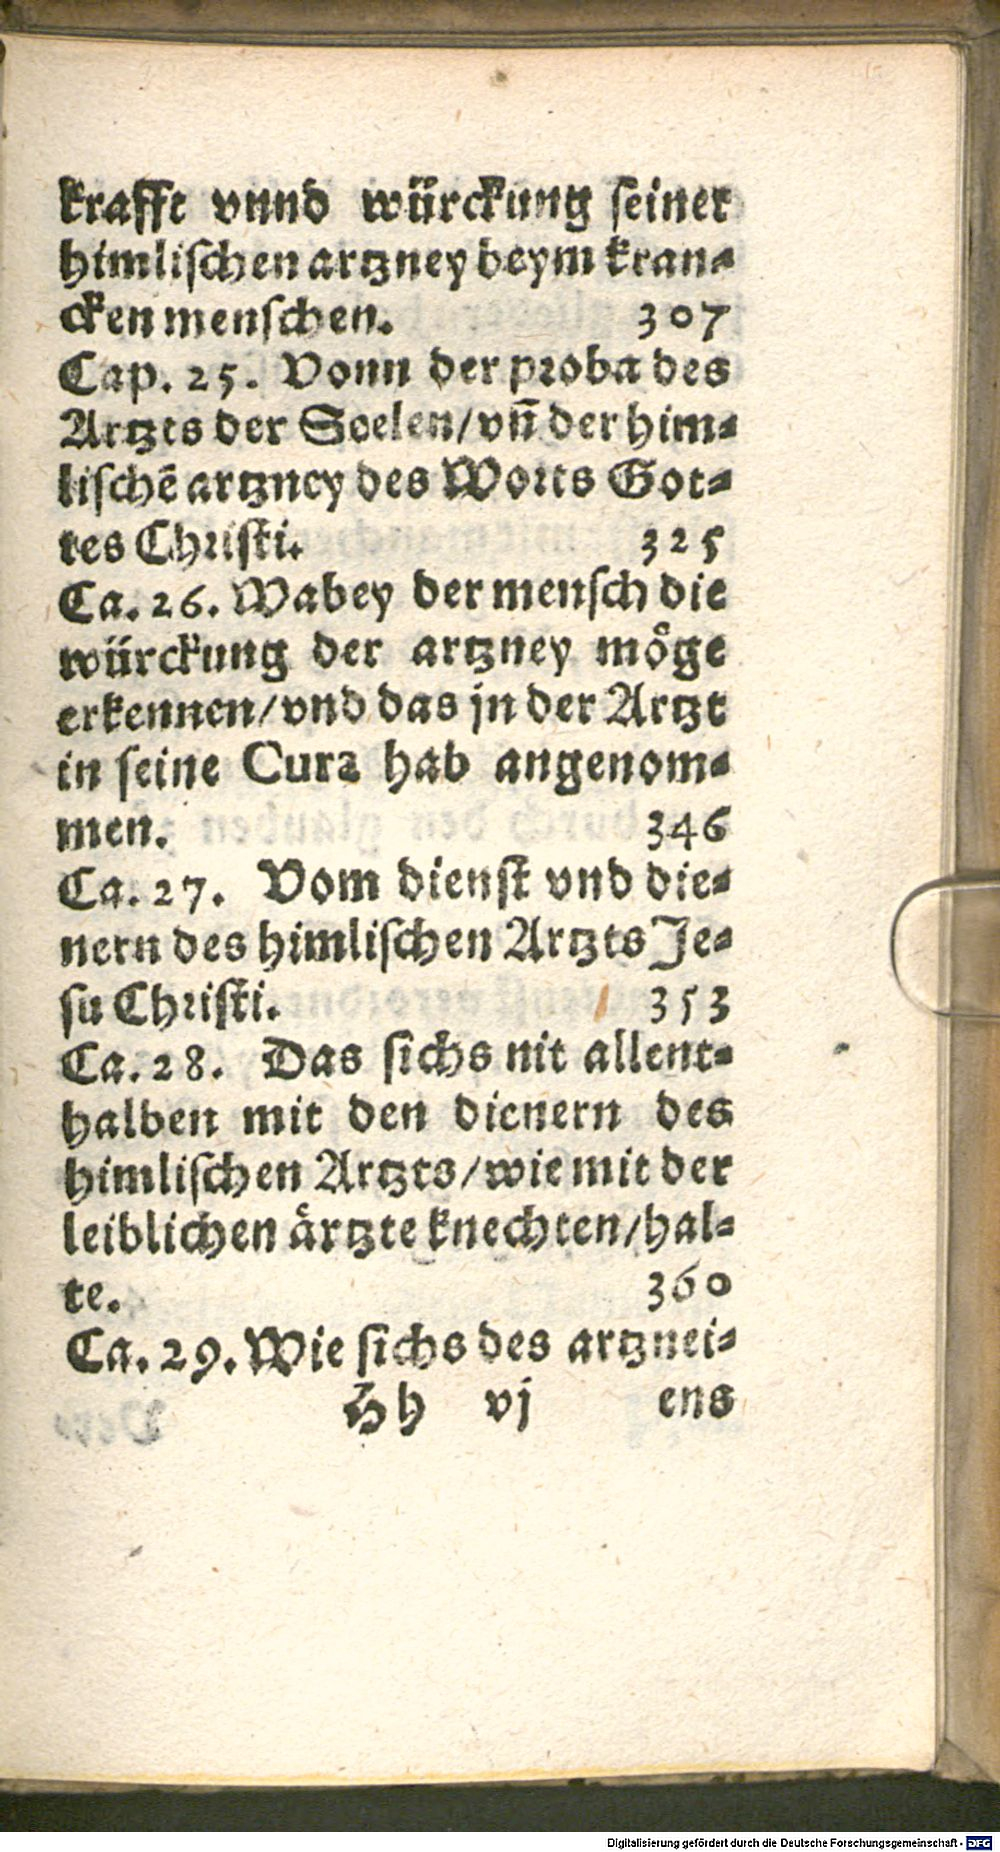 krafft vnnd würckung seiner
himlischen artzney beym kran-
cken menschen. 307
Cap. 25. Vonn der proba des
Artzts der Seelen/vñ der him-
lischē artzney des Worts Got-
tes Christi. 325
Ca. 26. Wabey der mensch die
würckung der artzney möge
erkennen/vnd das jn der Artzt
in seine Cura hab angenom-
men. 346
Ca. 27. Vom dienst vnd die-
nern des himlischen Artzts Je-
su Christi. 353
Ca. 28. Das sichs nit allent-
halben mit den dienern des
himlischen Artzts/wie mit der
leiblichen ärtzte knechten/hal-
te. 360
Ca. 29. Wie sichs des artznei-
Hh vj ens
Digitalisierung gefördert durch die Deutsche Forschungsgemeinschaft - DFG